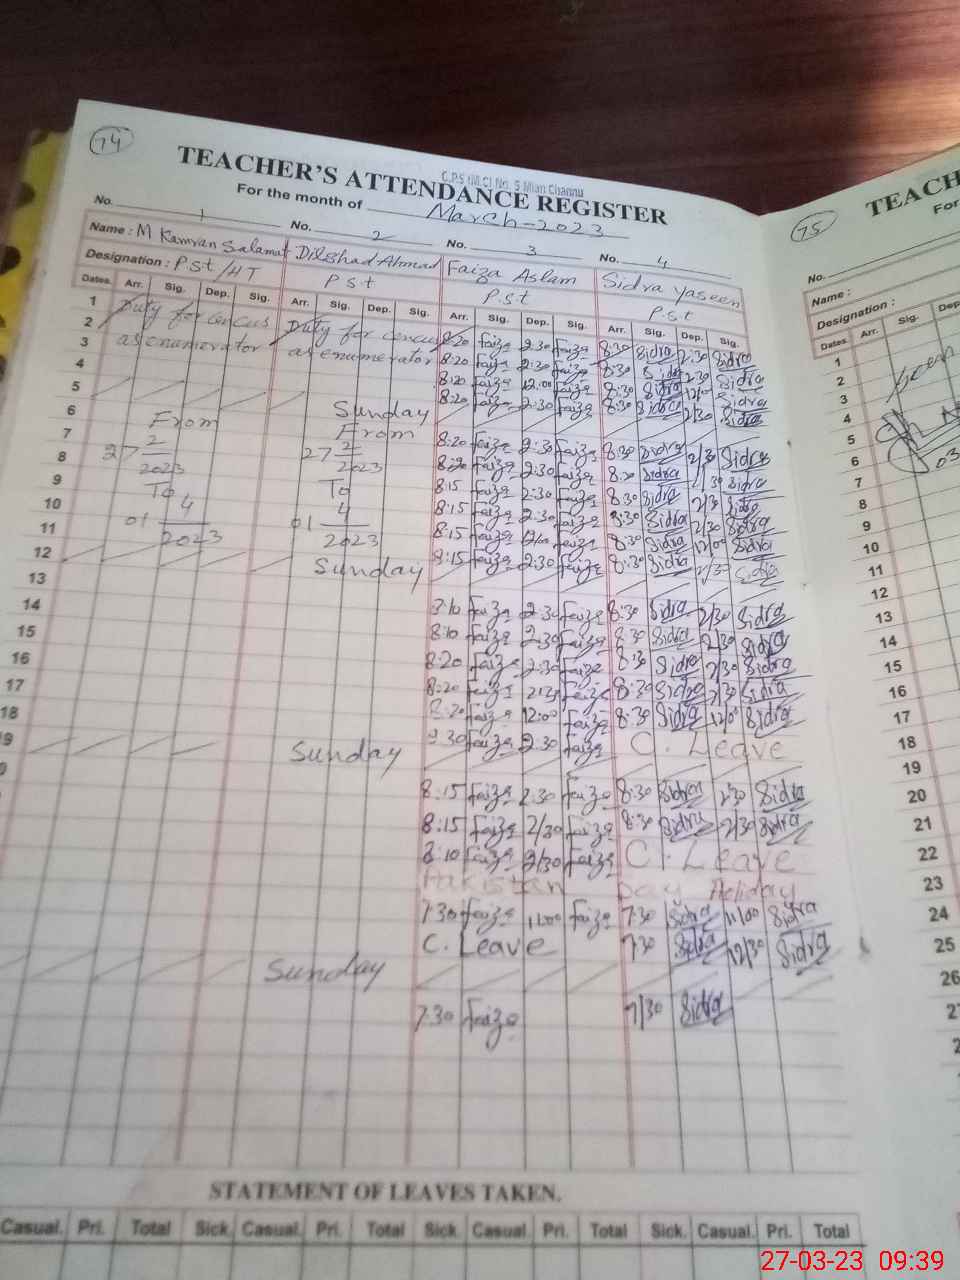 74
TEACHER'S ATTENDANCE REGISTER
G.P.S (M.C) No. 5 Mian Channu
For the month of March-2023
No. 1 No. 2 No. 3 No. 4
Name : M Kamran Salamat Dilshad Ahmad Faiza Aslam Sidra Yaseen
Designation : Pst/HT Pst P.st P.st
Dates. Arr. Sig. Dep. Sig. Arr. Sig. Dep. Sig. Arr. Sig. Dep. Sig. Arr. Sig. Dep. Sig.
1 Duty for cencus Duty for cencus 8:20 Faiza 2:30 Faiza 8:30 Sidra 2:30 Sidra
2 as enumerator as enumerator 8:20 Faiza 2:30 Faiza 8:30 Sidra 2:30 Sidra
3 8:20 Faiza 12:00 Faiza 8:30 Sidra 12/00 Sidra
4 8:20 Faiza 2:30 Faiza 8:30 Sidra 2/30 Sidra
5 Sunday
6 From From 8:20 Faiza 2:30 Faiza 8:30 Sidra 2/30 Sidra
7 27 2 2023 27 2 2023 8:20 Faiza 2:30 Faiza 8:30 Sidra 2/30 Sidra
8 8:15 Faiza 2:30 Faiza 8:30 Sidra 2/30 Sidra
9 To To 8:15 Faiza 2:30 Faiza 8:30 Sidra 2/30 Sidra
10 01 4 2023 01 4 2023 8:15 Faiza 12/00 Faiza 8:30 Sidra 12/00 Sidra
11 8:15 Faiza 2:30 Faiza 8:30 Sidra 2/30 Sidra
12 Sunday
13 8:10 Faiza 2:30 Faiza 8:30 Sidra 2/30 Sidra
14 8:10 Faiza 2:30 Faiza 8:30 Sidra 2/30 Sidra
15 8:20 Faiza 2:30 Faiza 8:30 Sidra 2/30 Sidra
16 8:20 Faiza 2:30 Faiza 8:30 Sidra 2/30 Sidra
17 8:20 Faiza 12:00 Faiza 8:30 Sidra 12/00 Sidra
18 Faiza 2:30 Faiza C. Leave
9 Sunday
8:15 Faiza 2:30 Faiza 8:30 Sidra 2/30 Sidra
8:15 Faiza 2/30 Faiza 8:30 Sidra 2/30 Sidra
8:10 Faiza 2/30 Faiza C. Leave
Pakistan Day Holiday
7:30 Faiza 11:00 Faiza 7:30 Sidra 11/00 Sidra
C. Leave 7:30 Sidra 12/30 Sidra
Sunday
7:30 Faiza 7/30 Sidra
STATEMENT OF LEAVES TAKEN.
Casual. Pri. Total Sick. Casual. Pri. Total Sick. Casual. Pri. Total Sick. Casual. Pri. Total
75
TEACH
For
No.
Name :
Designation :
Dates. Arr. Sig. Dep
1
2
3
4
5
6
7
8
9
10
11
12
13
14
15
16
17
18
19
20
21
22
23
24
25
26
27-03-23 09:39